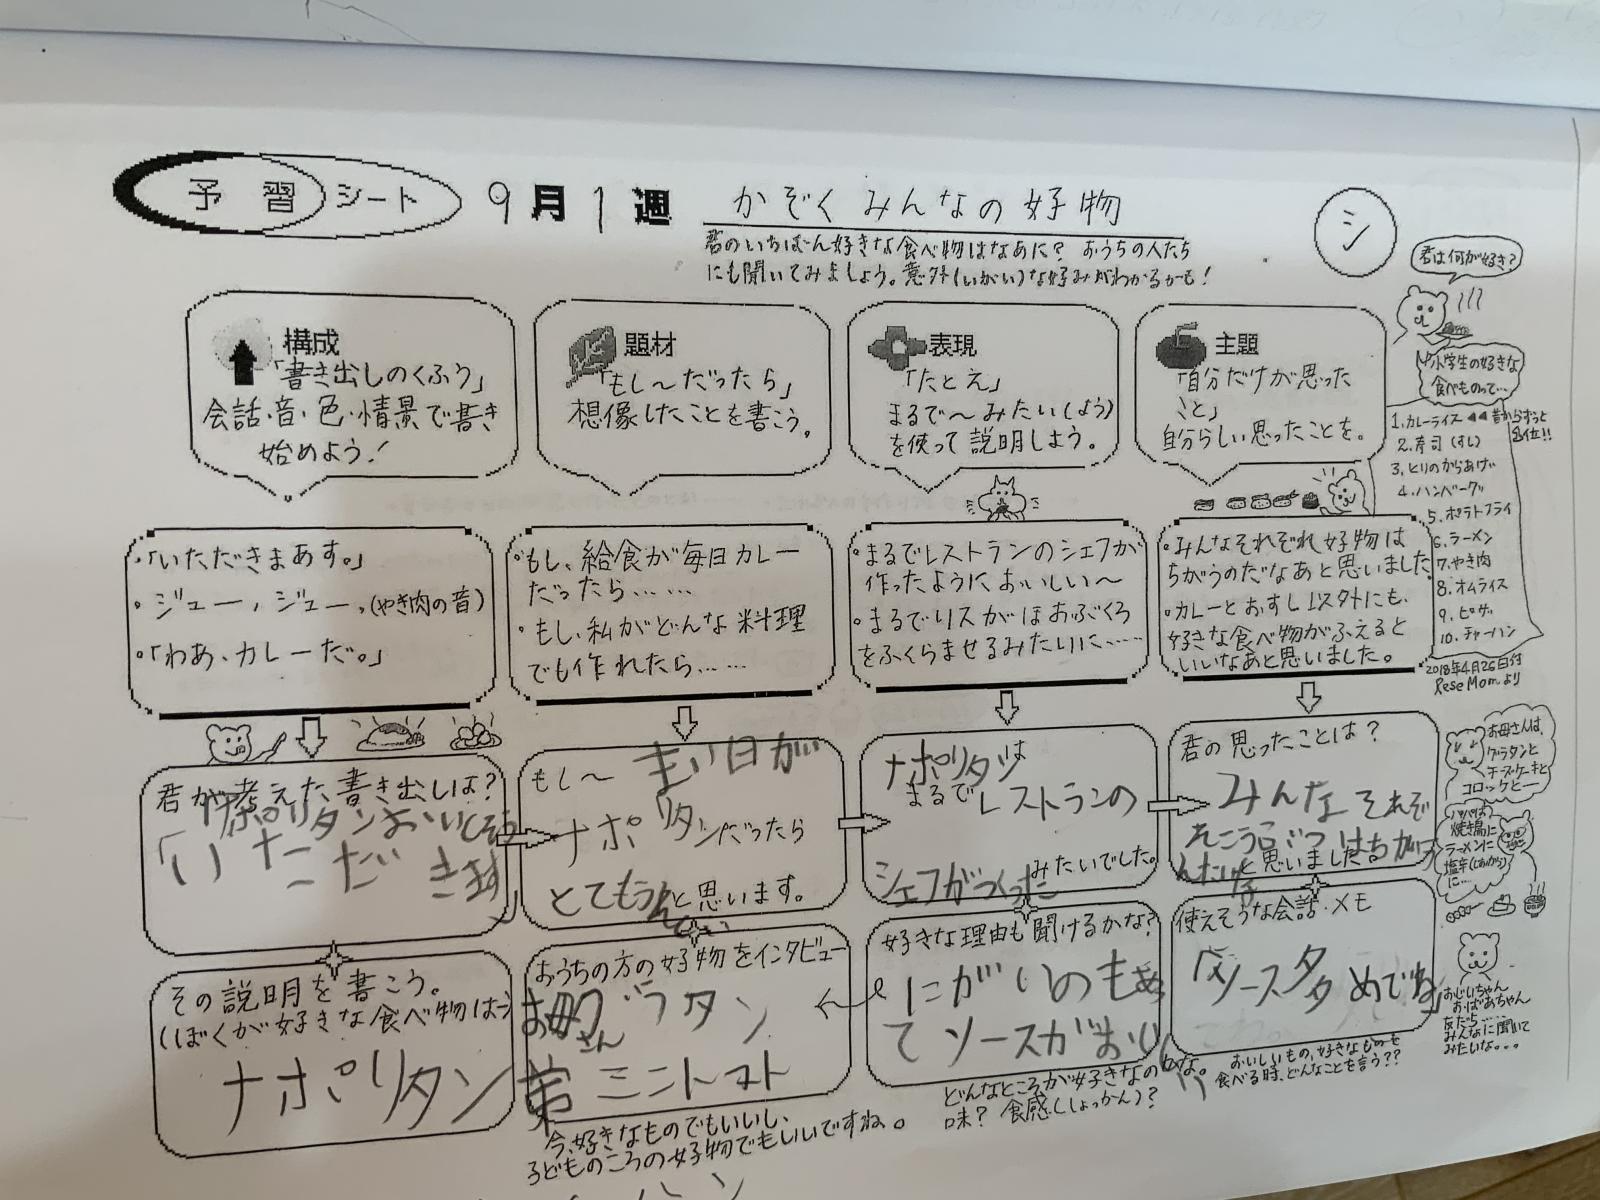 予習シート 9月1週 かぞくみんなの好物
シ
君のいちばん好きな食べ物はなあに? おうちの人たち
にも聞いてみましょう。意外(いがい)な好みがわかるかも!
君は何が好き?
小学生の好きな
食べものって…
1.カレーライス ◀◀昔からずっと
1位!!
2.寿司(すし)
3.とりのからあげ
4.ハンバーグ
5.ポテトフライ
6.ラーメン
7.やき肉
8.オムライス
9.ピザ
10.チャーハン
2018年4月26日付
ReseMomより
構成
「書き出しのくふう」
会話・音・色・情景で書き
始めよう!
題材
「もし〜だったら」
想像したことを書こう。
表現
「たとえ」
まるで〜みたい(よう)
を使って説明しよう。
主題
「自分だけが思った
こと」
自分らしい思ったことを。
・「いただきまあす。」
・ジュー、ジュー。(やき肉の音)
・「わあ、カレーだ。」
・もし、給食が毎日カレー
だったら……
・もし、私がどんな料理
でも作れたら……
・まるでレストランのシェフが
作ったようにおいしい〜
・まるでリスがほおぶくろ
をふくらませるみたいに……
・みんなそれぞれ好物は
ちがうのだなあと思いました。
・カレーとおすし以外にも、
好きな食べ物がふえると
いいなあと思いました。
君が考えた書き出しは?
ナポリタンおいしそう
「いただきます」
もし〜 まい日が
ナポリタンだったら
とてもうれしいと思います。
ナポリタンは
まるでレストランの
シェフがつくったみたいでした。
君の思ったことは?
みんなそれぞ
れこうぶつはちがう
んだなと思いました。
お母さんは、
グラタンと
チーズケーキと
コロッケとー
パパは
焼き鳥に
ラーメンに
塩辛(しおから)
に…
その説明を書こう。
(ぼくが好きな食べ物は)
ナポリタン
おうちの方の好物をインタビュー
お母さん グラタン
弟 ミニトマト
今、好きなものでもいいし、
子どものころの好物でもいいですね。
好きな理由も聞けるかな?
にがいのもあっ
てソースがおいしい
どんなところが好きなのかな。
味? 食感(しょっかん)?
使えそうな会話・メモ
「ソース多めでね」
おいしいもの、好きなものを
食べる時、どんなことを言う??
おじいちゃん
おばあちゃん
友だち……
みんなに聞いて
みたいな。。。